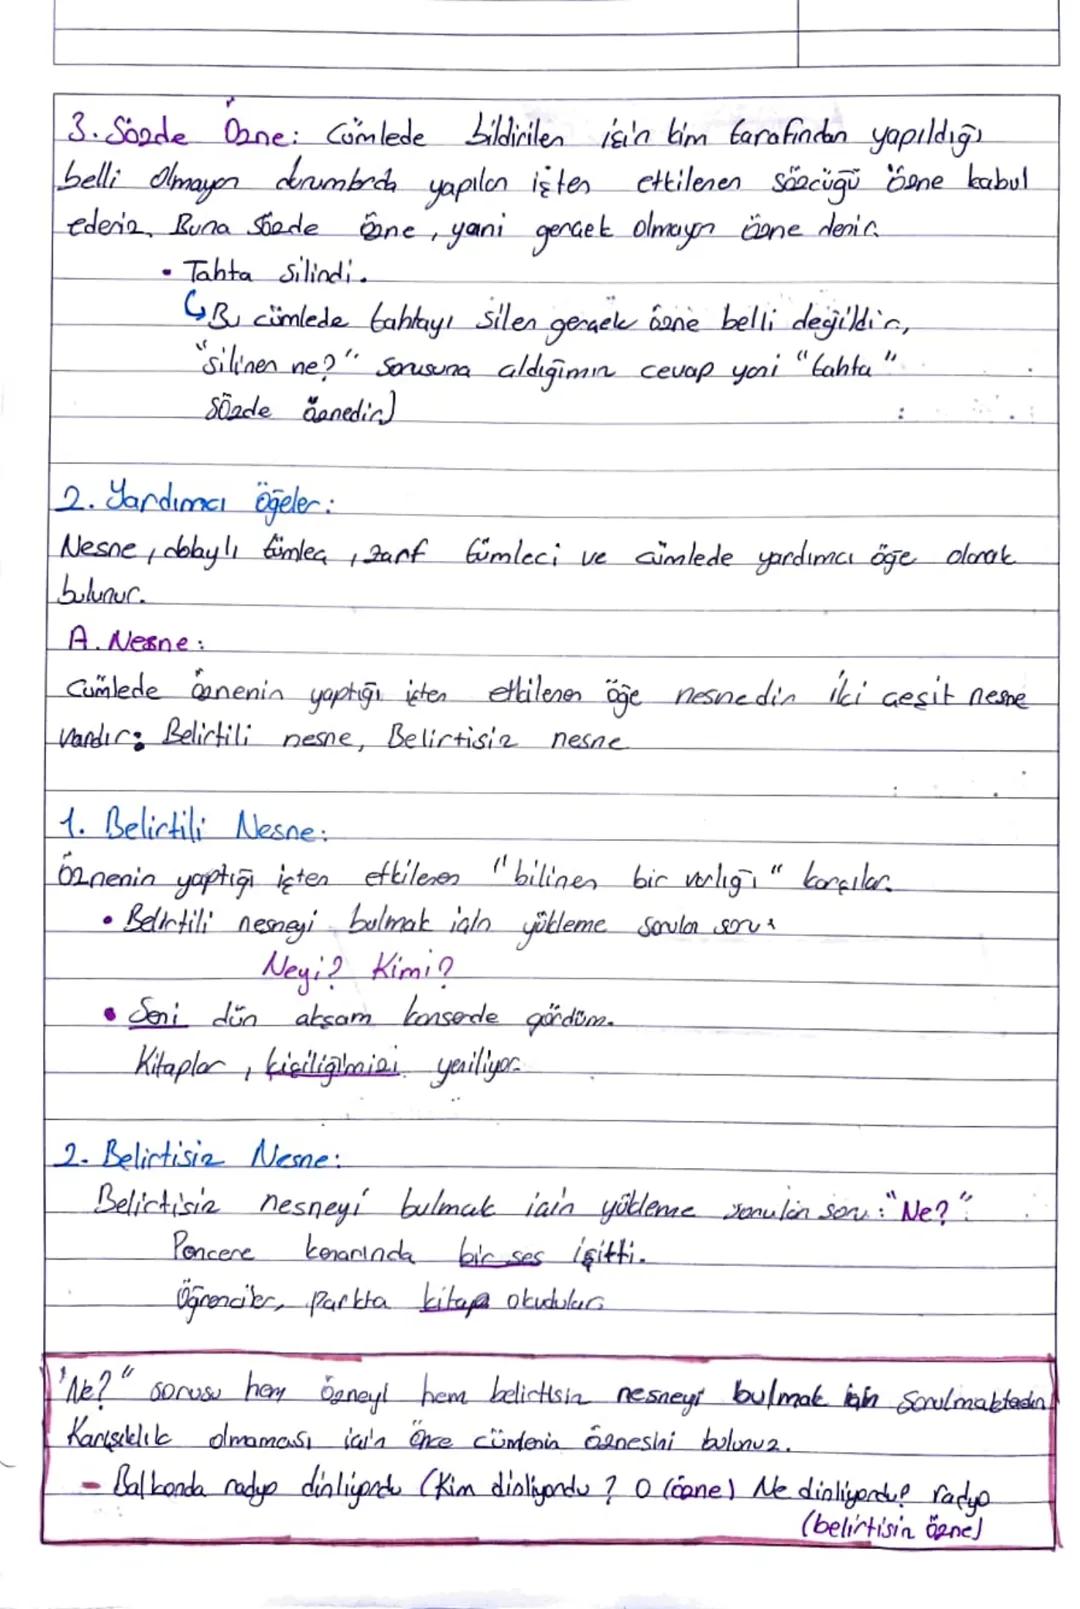 3. Sözde Özne: Cümlede bildirilen işin kim tarafından yapıldığı
belli olmayan durumlarda yapılan işten etkilenen sözcüğü özne kabul
ederiz. Buna sözde özne, yani gerçek olmayan özne denir.
• Tahta silindi.
↳ Bu cümlede tahtayı silen gerçek özne belli değildir,
"silinen ne?" sorusuna aldığımız cevap yani "tahta"
sözde öznedir)
2. Yardımcı Öğeler:
Nesne, dolaylı tümleç, zarf tümleci ve cümlede yardımcı öğe olarak
bulunur.
A. Nesne:
Cümlede öznenin yaptığı işten etkilenen öğe nesnedir iki çeşit nesne
vardır; Belirtili nesne, Belirtisiz nesne
1. Belirtili Nesne:
Öznenin yaptığı işten etkilenen "bilinen bir varlığı" karşılar.
• Belirtili nesneyi bulmak için yükleme sorulan soru:
Neyi? Kimi?
• Seni dün akşam konserde gördüm.
Kitaplar, kişiliğimizi yeniliyor.
2. Belirtisiz Nesne:
Belirtisiz nesneyi bulmak için yükleme sorulan soru: "Ne?"
Pencere kenarında bir ses işitti.
Öğrenciler, parkta kitap okudular.
"Ne?" sorusu hem özneyi hem belirtisiz nesneyi bulmak için sorulmaktadır.
Karışıklık olmaması için önce cümlenin öznesini bulunuz.
- Balkonda radyo dinliyordu (Kim dinliyordu? O (özne) Ne dinliyordu? radyo
(belirtisiz özne)